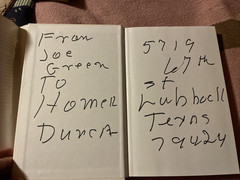 Fran
Joe
Green
To
Homer
DurcA
5719
67th
st
Lubbock
Texas
79424